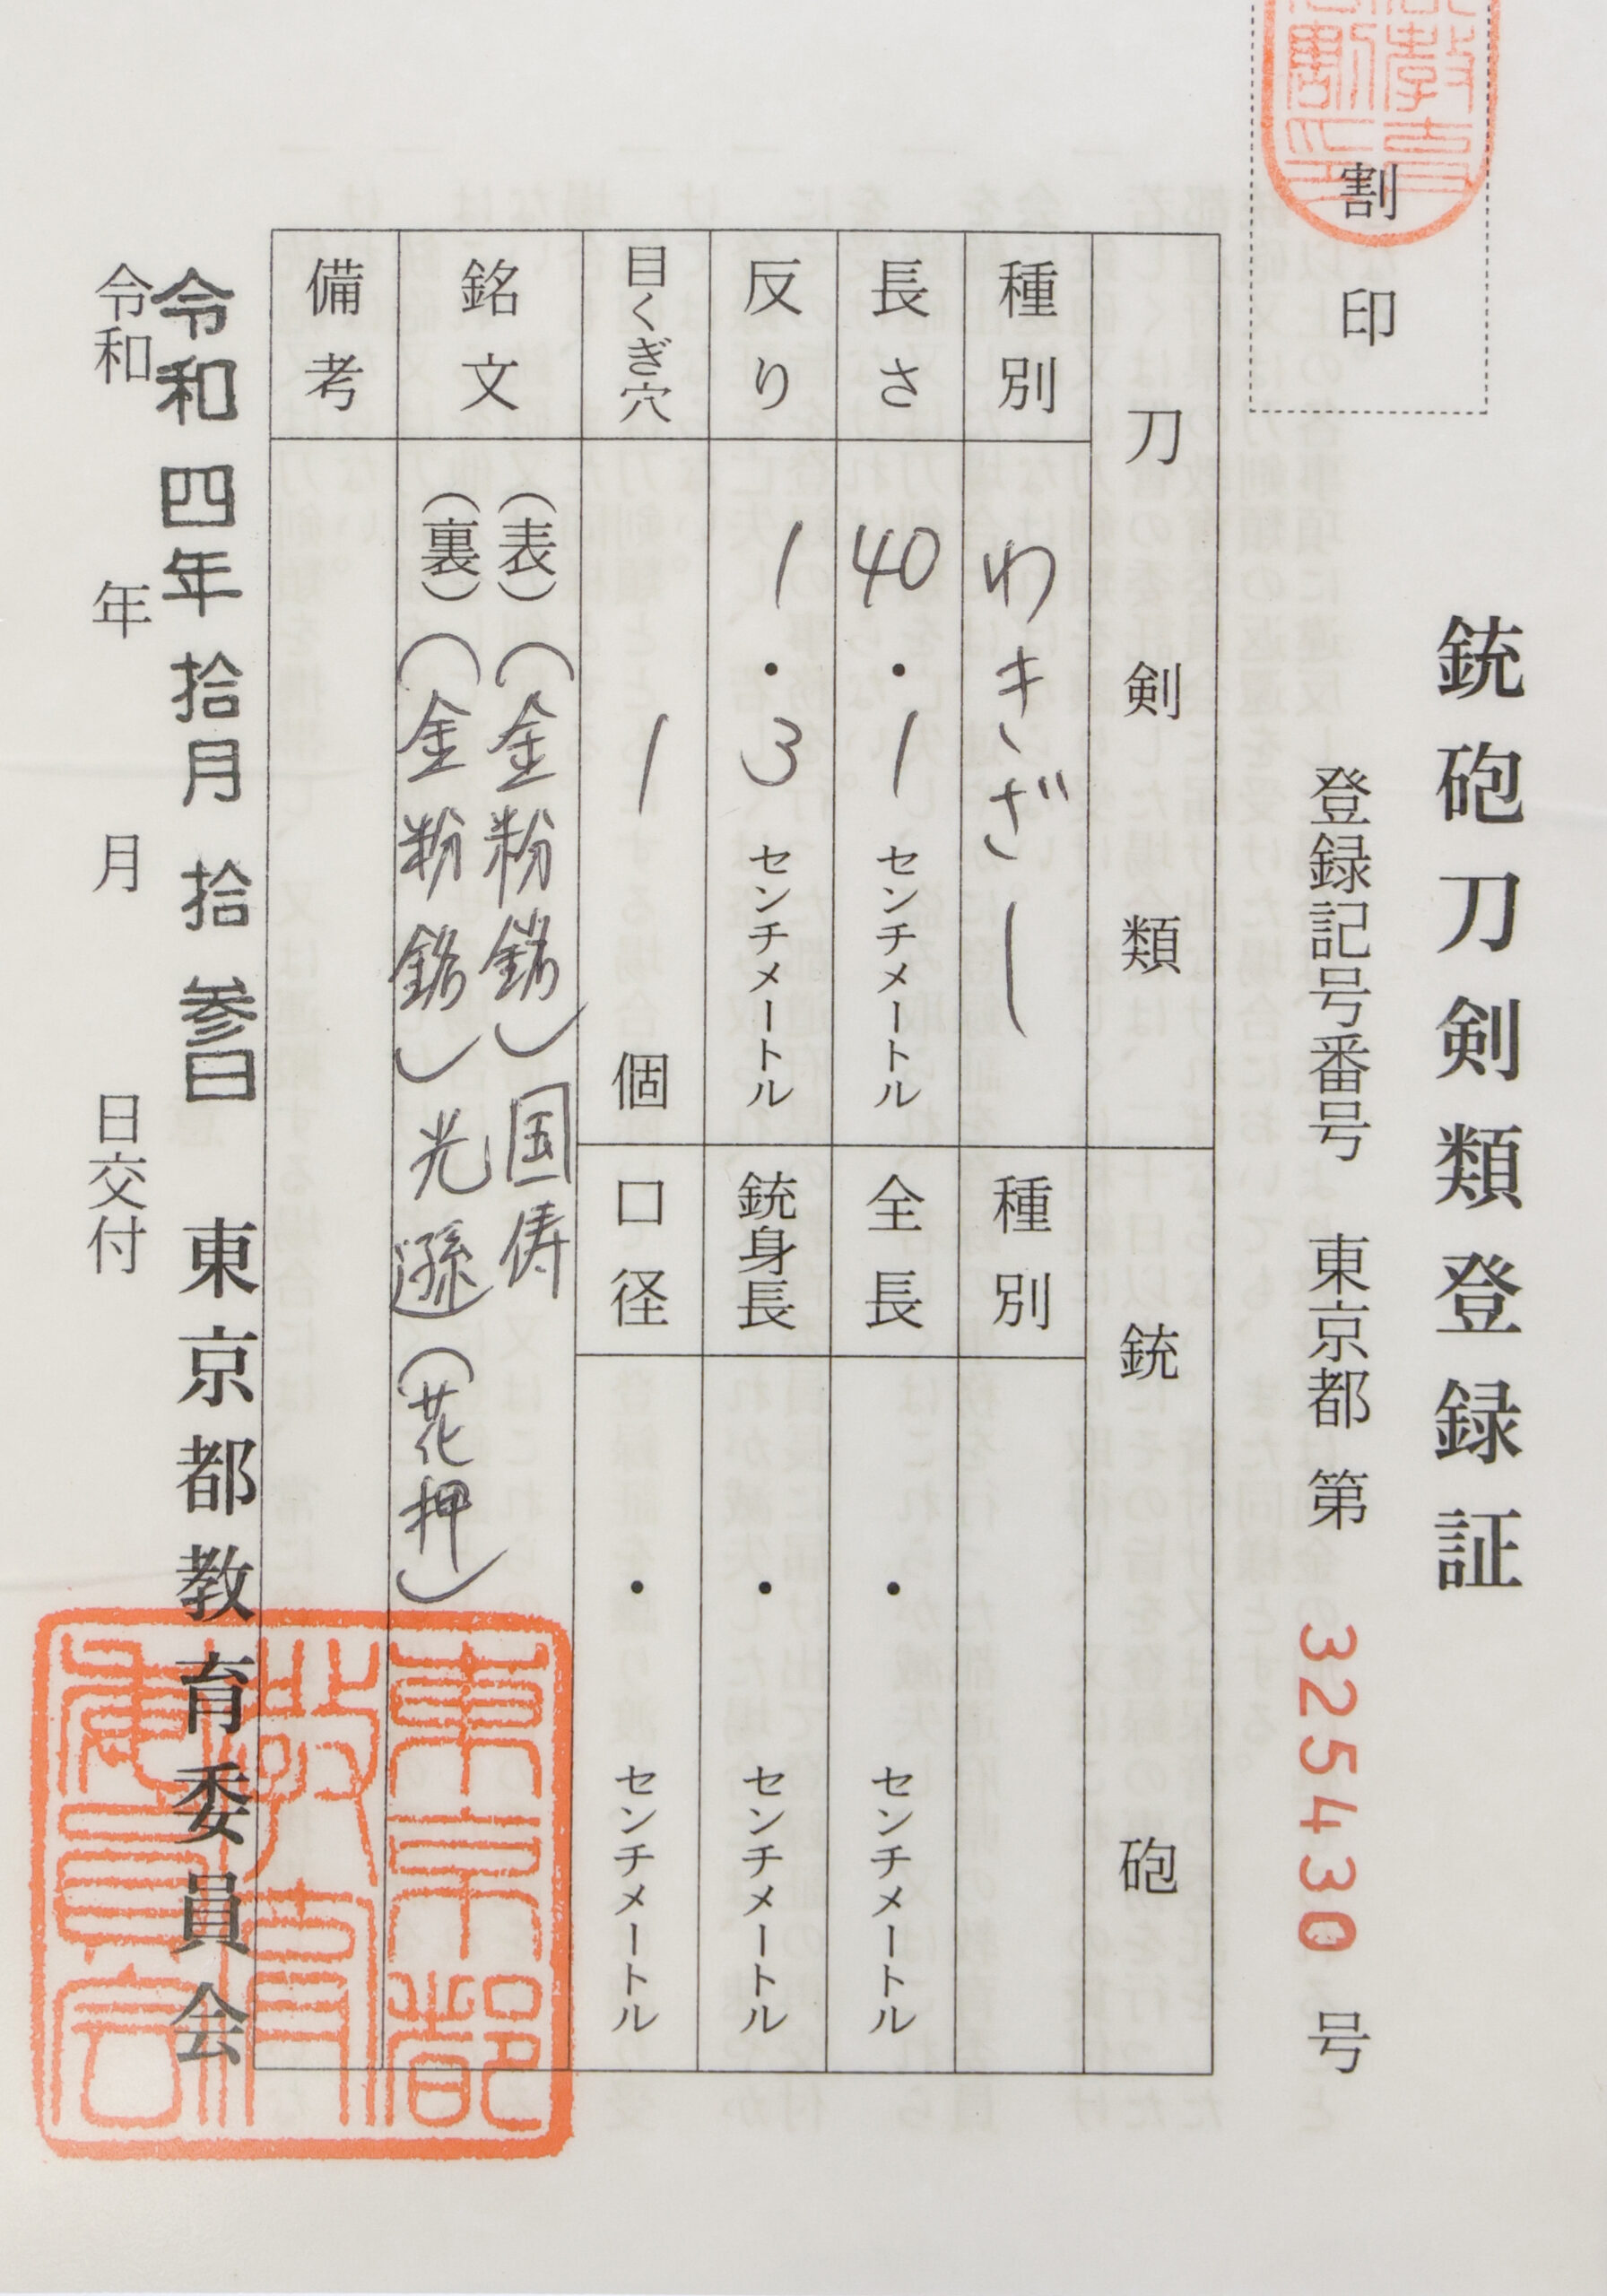 割印
銃砲刀剣類登録証
登録記号番号 東京都 第 325430 号
刀剣類
銃砲
種別
わきざし
種別
長さ
40・1センチメートル
全長
・センチメートル
反り
1・3センチメートル
銃身長
・センチメートル
目くぎ穴
1個
口径
・センチメートル
銘文
(表)(金粉銘)国俦
(裏)(金粉銘)光遜(花押)
備考
令和四年拾月拾参日 東京都教育委員会
令和 年 月 日交付
東京都教育委員会